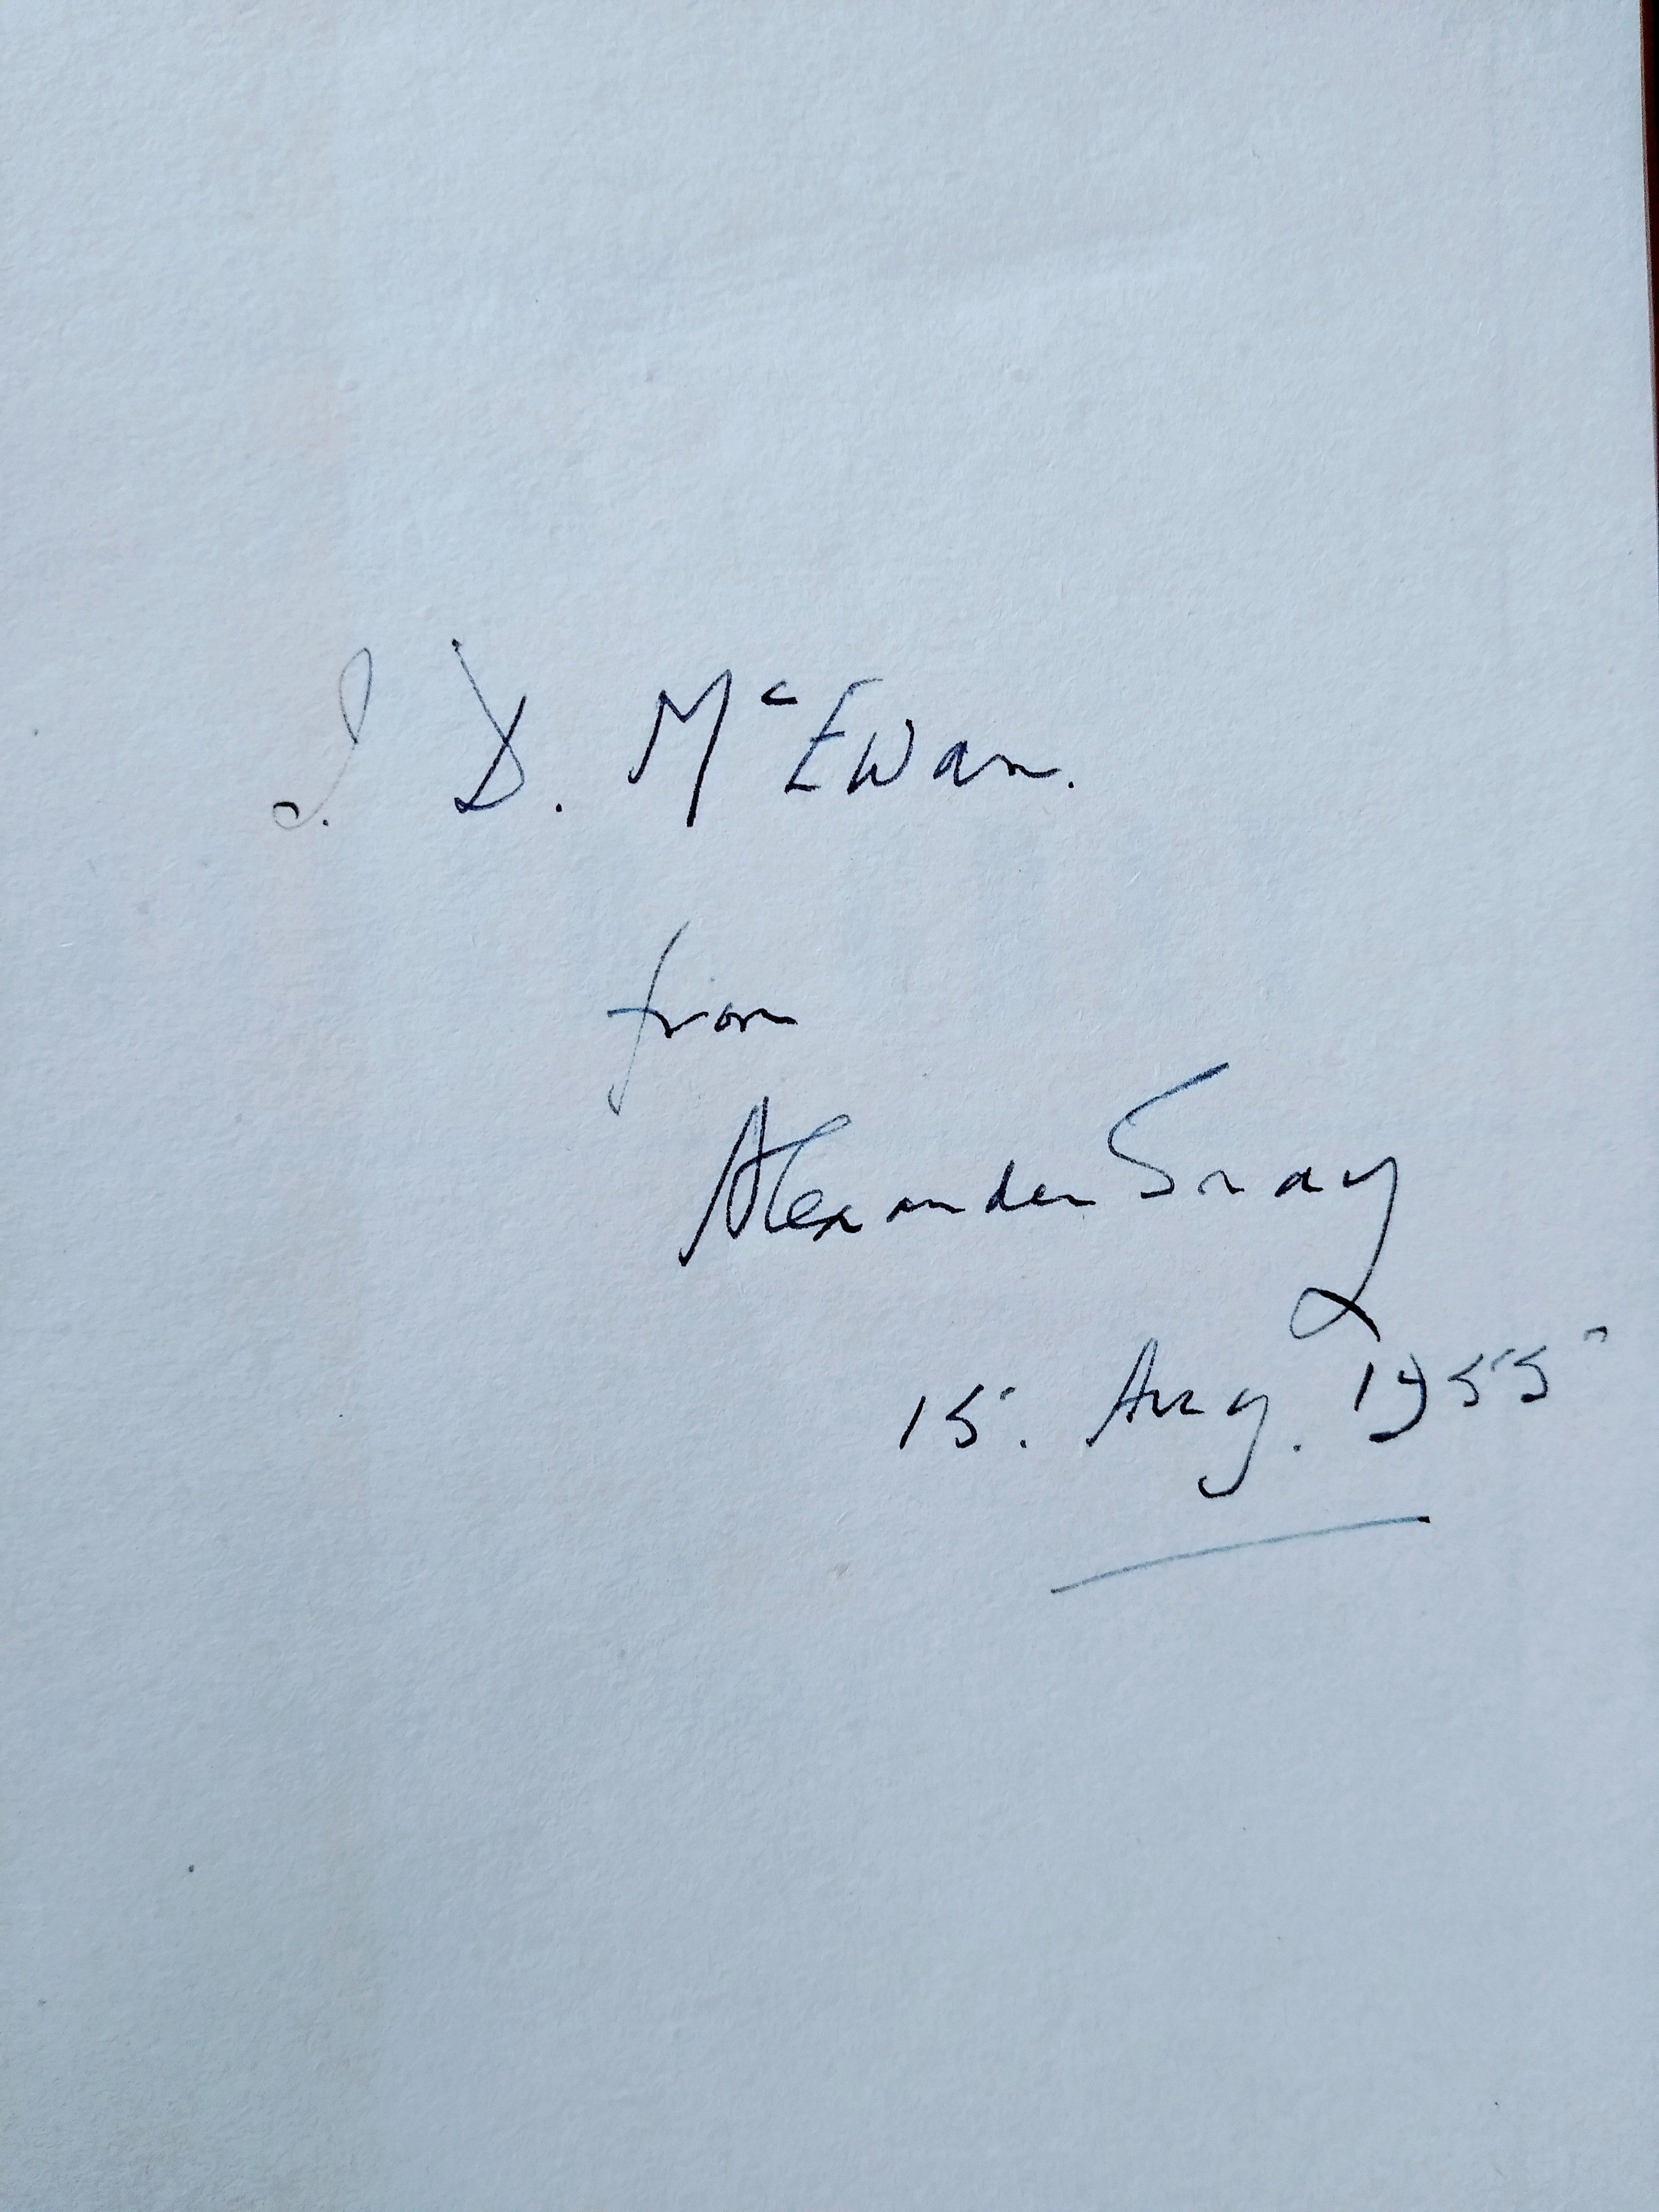 I. D. McEwan.
from
Alexander Gray
15. Aug. 1955